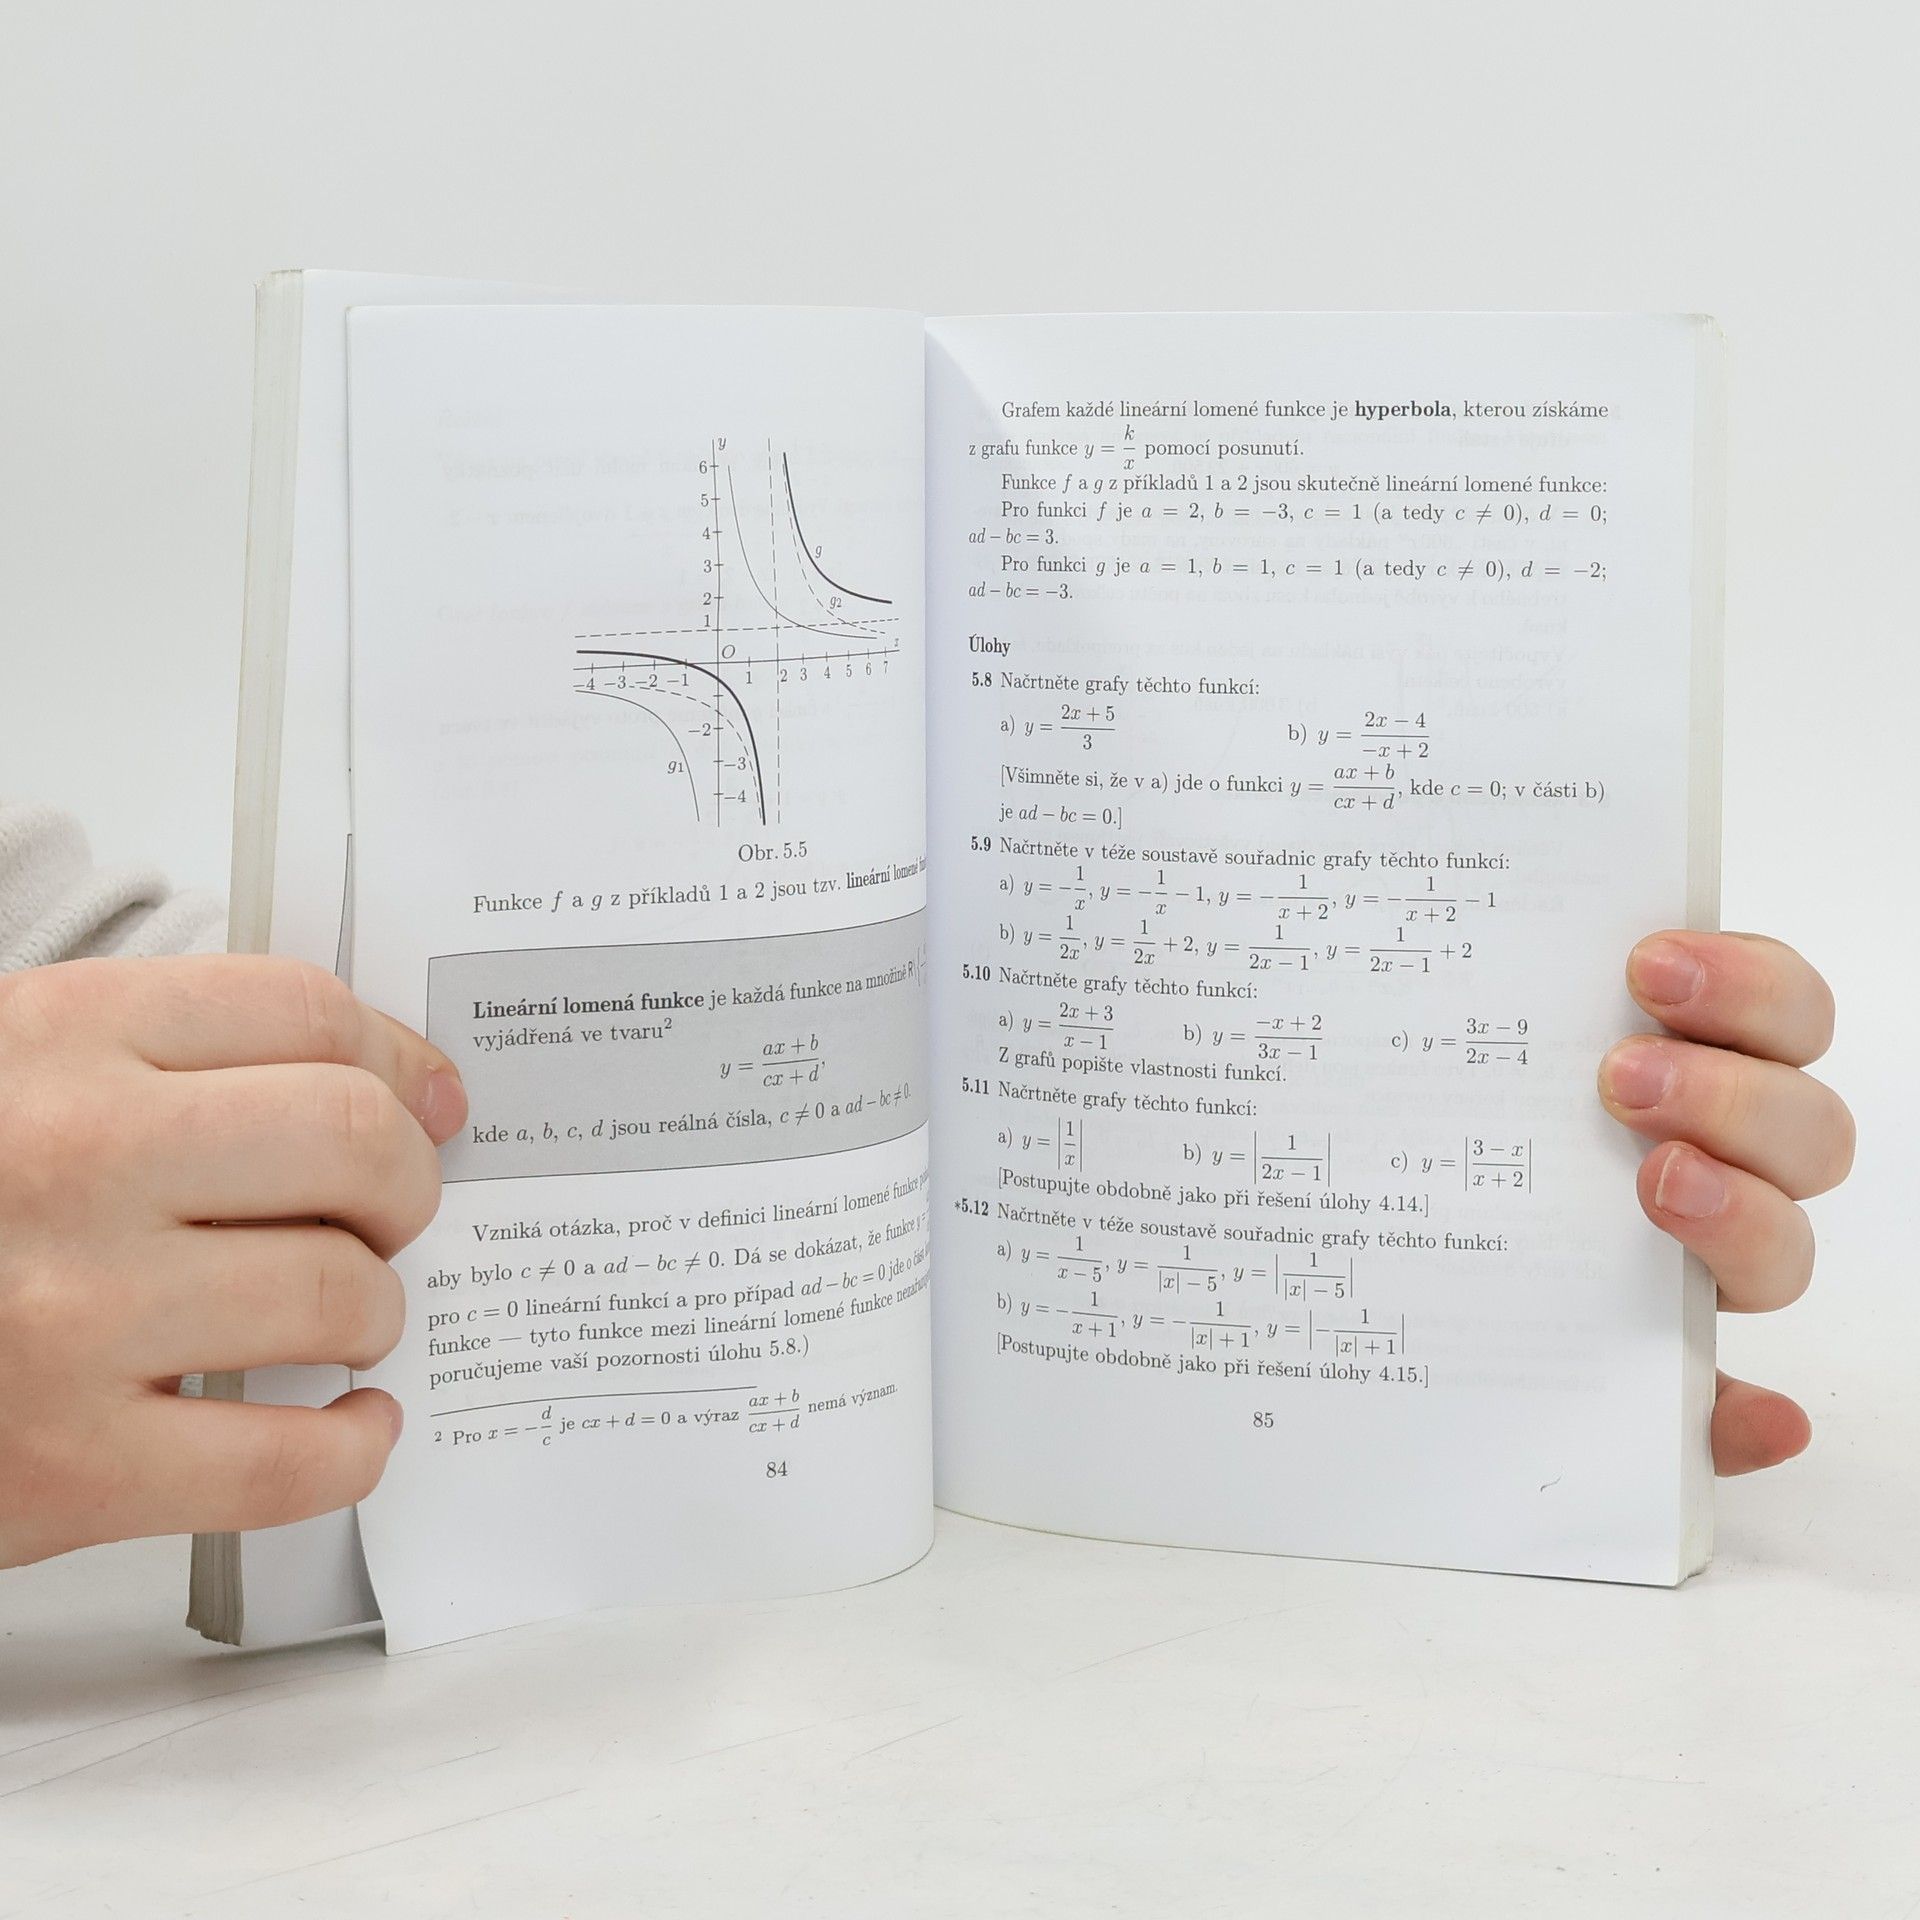 y
6
5
4
3
2
1
g
g2
O
x
-4 -3 -2 -1 1 2 3 4 5 6 7
-2
g1
-3
-4
Obr. 5.5
Funkce f a g z příkladů 1 a 2 jsou tzv. lineární lomené
Lineární lomená funkce je každá funkce na množině R \
vyjádřená ve tvaru²
y = (ax + b)/(cx + d),
kde a, b, c, d jsou reálná čísla, c ≠ 0 a ad − bc ≠ 0.
Vzniká otázka, proč v definici lineární lomené funkce
aby bylo c ≠ 0 a ad − bc ≠ 0. Dá se dokázat, že funkce y =
pro c = 0 lineární funkcí a pro případ ad − bc = 0 jde o část
funkce — tyto funkce mezi lineární lomené funkce
poručujeme vaší pozornosti úlohu 5.8.)
2 Pro x = −d/c je cx + d = 0 a výraz (ax + b)/(cx + d) nemá význam.
84
Grafem každé lineární lomené funkce je hyperbola, kterou získáme
z grafu funkce y = k/x pomocí posunutí.
Funkce f a g z příkladů 1 a 2 jsou skutečně lineární lomené funkce:
Pro funkci f je a = 2, b = −3, c = 1 (a tedy c ≠ 0), d = 0;
ad − bc = 3.
Pro funkci g je a = 1, b = 1, c = 1 (a tedy c ≠ 0), d = −2;
ad − bc = −3.
Úlohy
5.8 Načrtněte grafy těchto funkcí:
a) y = (2x + 5)/3 b) y = (2x − 4)/(−x + 2)
[Všimněte si, že v a) jde o funkci y = (ax + b)/(cx + d), kde c = 0; v části b)
je ad − bc = 0.]
5.9 Načrtněte v téže soustavě souřadnic grafy těchto funkcí:
a) y = −1/x, y = −1/x − 1, y = −1/(x + 2), y = −1/(x + 2) − 1
b) y = 1/(2x), y = 1/(2x) + 2, y = 1/(2x − 1), y = 1/(2x − 1) + 2
5.10 Načrtněte grafy těchto funkcí:
a) y = (2x + 3)/(x − 1) b) y = (−x + 2)/(3x − 1) c) y = (3x − 9)/(2x − 4)
Z grafů popište vlastnosti funkcí.
5.11 Načrtněte grafy těchto funkcí:
a) y = |1/x| b) y = |1/(2x − 1)| c) y = |(3 − x)/(x + 2)|
[Postupujte obdobně jako při řešení úlohy 4.14.]
*5.12 Načrtněte v téže soustavě souřadnic grafy těchto funkcí:
a) y = 1/(x − 5), y = 1/(|x| − 5), y = |1/(|x| − 5)|
b) y = −1/(x + 1), y = −1/(|x| + 1), y = |−1/(|x| + 1)|
[Postupujte obdobně jako při řešení úlohy 4.15.]
85